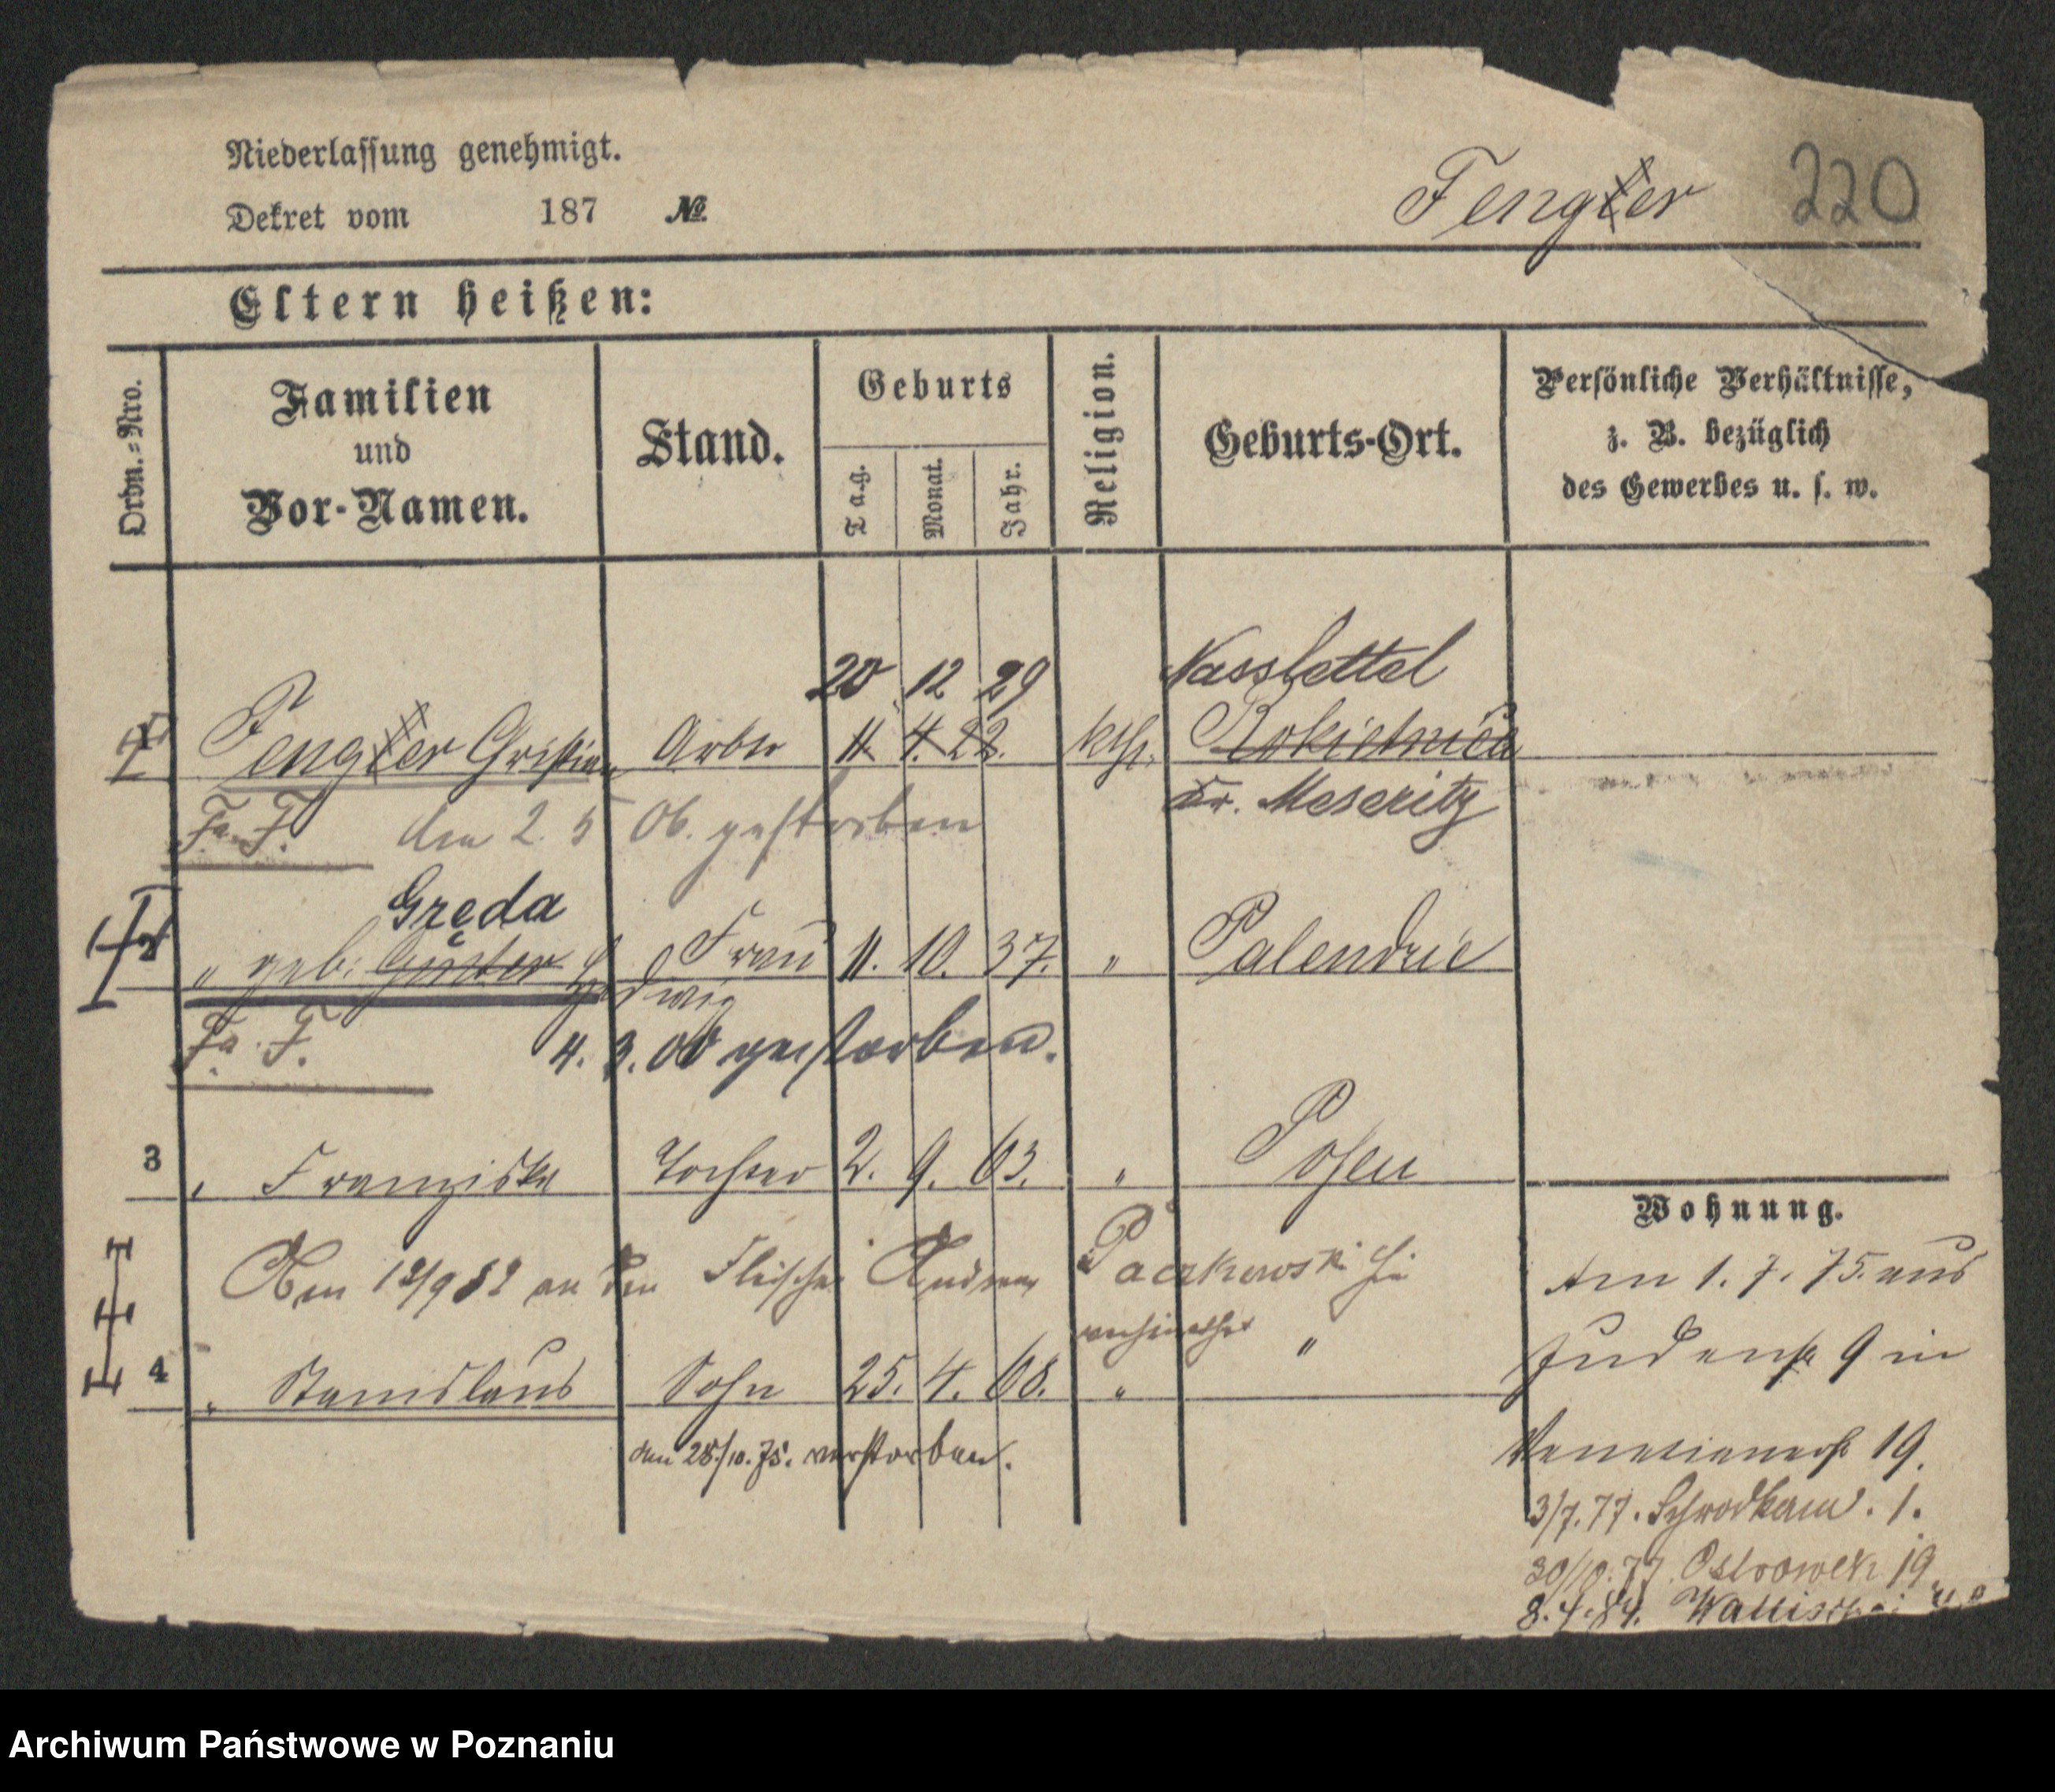 Niederlassung genehmigt.
Dekret vom 187 №
Fengler 220
Eltern heißen:
Ordn.=Nro.
Familien
und
Vor-Namen.
Stand.
Geburts
Tag.
Monat.
Jahr.
Religion.
Geburts-Ort.
Persönliche Verhältnisse,
z. B. bezüglich
des Gewerbes u. s. w.
20 12 29 Nasslettel
1 Fengler Christian Arbtr 11. 4. 22. kth. Rokietnica
Kr. Meseritz
Fa. F. den 2. 5 06. gestorben
Gręda
2 " geb: Günter Hedwig Frau 11. 10. 37. " Palendzie
Fa. F. 4. 3. 00 gestorben.
3 " Franziska Tochter 2. 9. 63. " Posen
Am 12/9 82 an den Fleischer Andreas Paczkowski hier
verheirathet
4 " Stanislaus Sohn 25. 4. 68. " "
den 28./10. 75. verstorben.
Wohnung.
Am 1. 7. 75. aus
Judenstr 9 in
Venetianerstr 19.
3/7. 77. Schrodkam. 1.
30/10. 77. Ostrowek 19
8. 4. 84. Wallischei
Archiwum Państwowe w Poznaniu